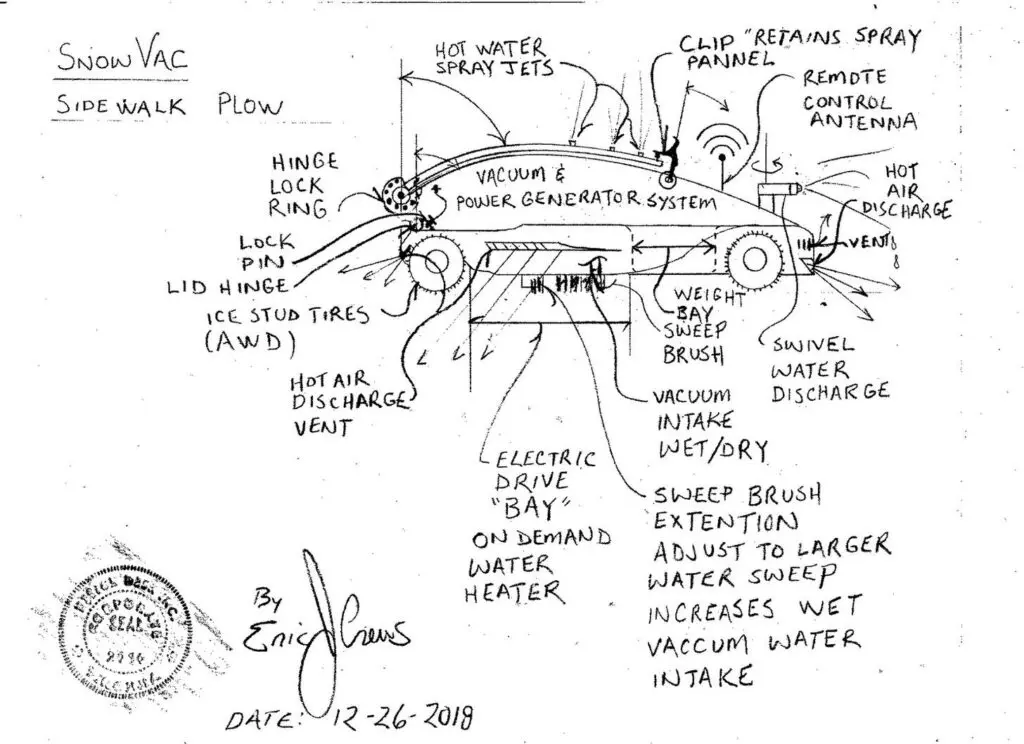 SNOWVAC
SIDEWALK PLOW
HOT WATER
SPRAY JETS
CLIP "RETAINS SPRAY
PANNEL
REMOTE
CONTROL
ANTENNA
HINGE
LOCK
RING
VACUUM &
POWER GENERATOR SYSTEM
HOT
AIR
DISCHARGE
VENT
LOCK
PIN
LID HINGE
ICE STUD TIRES
(AWD)
WEIGHT
BAY
SWEEP
BRUSH
SWIVEL
WATER
DISCHARGE
HOT AIR
DISCHARGE
VENT
VACUUM
INTAKE
WET/DRY
ELECTRIC
DRIVE
"BAY"
ON DEMAND
WATER
HEATER
SWEEP BRUSH
EXTENTION
ADJUST TO LARGER
WATER SWEEP
INCREASES WET
VACCUM WATER
INTAKE
SEAL
By
Eric J Crews
DATE: 12-26-2018